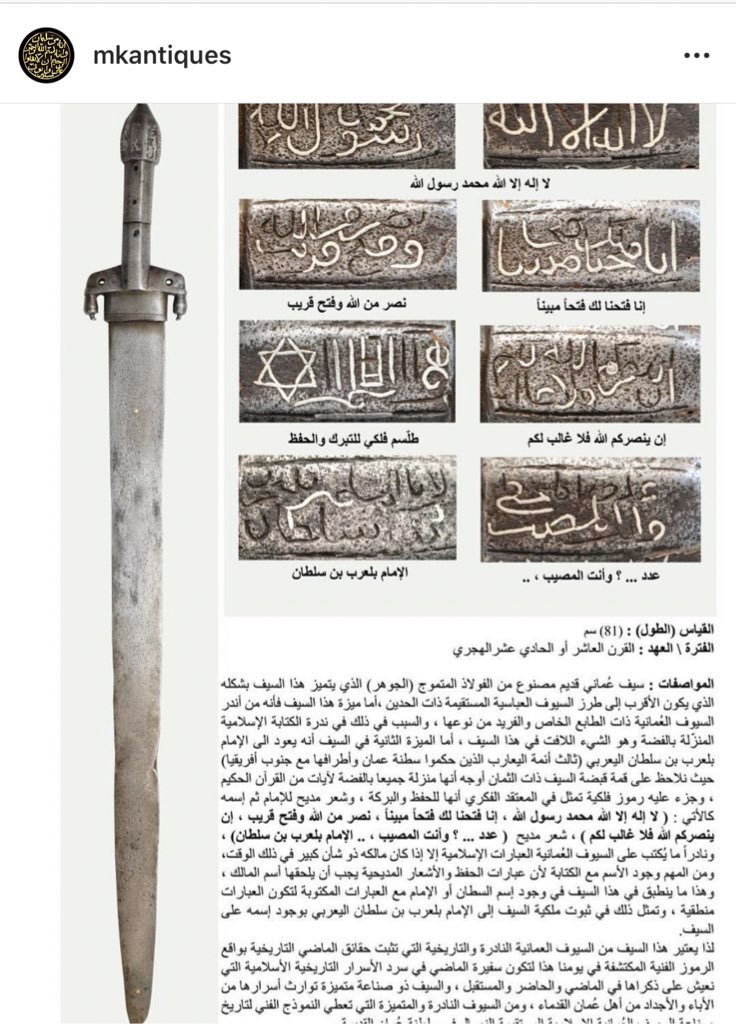 mkantiques
لا إله إلا الله محمد رسول الله
إنا فتحنا لك فتحاً مبيناً
نصر من الله وفتح قريب
إن ينصركم الله فلا غالب لكم
طلّسم فلكي للتبرك والحفظ
عدد ... ؟ وأنت المصيب ، ..
الإمام بلعرب بن سلطان
القياس (الطول) : (81) سم
الفترة \ العهد : القرن العاشر أو الحادي عشرالهجري
المواصفات : سيف عُماني قديم مصنوع من الفولاذ المتموج (الجوهر) الذي يتميز هذا السيف بشكله
الذي يكون الأقرب إلى طرز السيوف العباسية المستقيمة ذات الحدين ،أما ميزة هذا السيف فأنه من أندر
السيوف العُمانية ذات الطابع الخاص والفريد من نوعها ، والسبب في ذلك في ندرة الكتابة الإسلامية
المنزّلة بالفضة وهو الشيء اللافت في هذا السيف ، أما الميزة الثانية في السيف أنه يعود الى الإمام
بلعرب بن سلطان اليعربي (ثالث أئمة اليعارب الذين حكموا سلطنة عمان وأطرافها مع جنوب أفريقيا)
حيث نلاحظ على قمة قبضة السيف ذات الثمان أوجه أنها منزلة جميعا بالفضة لآيات من القرآن الحكيم
، وجزء عليه رموز فلكية تمثل في المعتقد الفكري أنها للحفظ والبركة ، وشعر مديح للإمام ثم إسمه
كالأتي : ( لا إله إلا الله محمد رسول الله ، إنا فتحنا لك فتحاً مبيناً ، نصر من الله وفتح قريب ، إن
ينصركم الله فلا غالب لكم ) ، شعر مديح ( عدد ... ؟ وأنت المصيب ، .. الإمام بلعرب بن سلطان) ،
ونادراً ما يُكتب على السيوف العُمانية العبارات الإسلامية إلا إذا كان مالكه ذو شأن كبير في ذلك الوقت،
ومن المهم وجود الأسم مع الكتابة لأن عبارات الحفظ والأشعار المديحية يجب أن يلحقها أسم المالك ،
وهذا ما ينطبق في هذا السيف في وجود إسم السطان أو الإمام مع العبارات المكتوبة لتكون العبارات
منطقية ، وتمثل ذلك في ثبوت ملكية السيف إلى الإمام بلعرب بن سلطان اليعربي بوجود إسمه على
السيف.
لذا يعتبر هذا السيف من السيوف العمانية النادرة والتاريخية التي تثبت حقائق الماضي التاريخية بواقع
الرموز الفنية المكتشفة في يومنا هذا لتكون سفيرة الماضي في سرد الأسرار التاريخية الأسلامية التي
نعيش على ذكراها في الماضي والحاضر والمستقبل ، والسيف ذو صناعة متميزة توارث أسرارها من
الأباء والأجداد من أهل عُمان القدماء ، ومن السيوف النادرة والمتميزة التي تعطي النموذج الفني لتاريخ